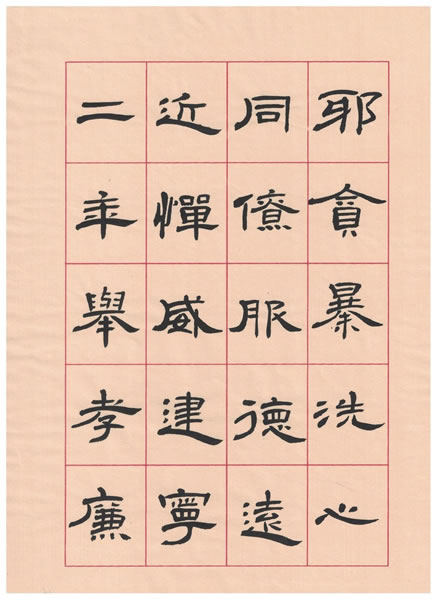 耶貪暴洗心
同僚服德遠
近憚威建寧
二年舉孝廉